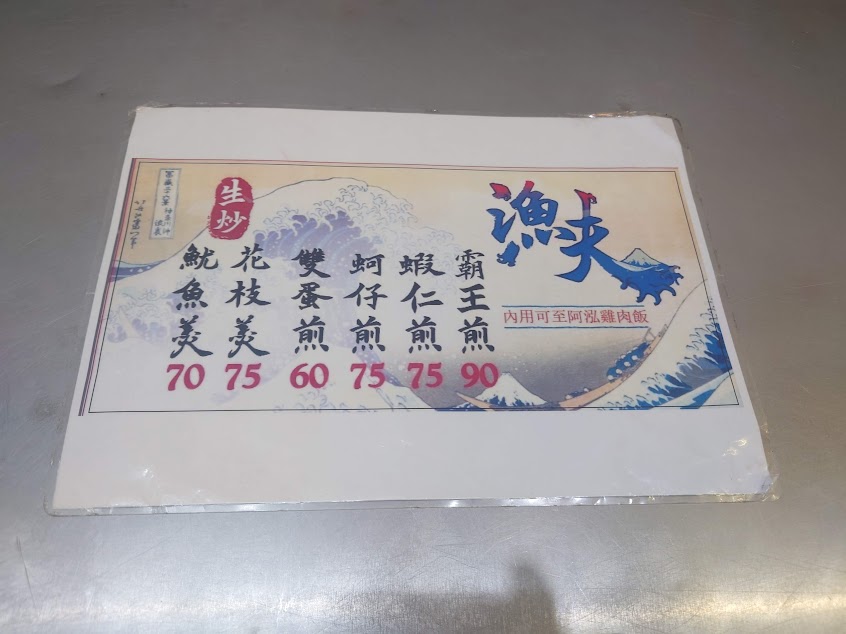 漁夫
內用可至阿泓雞肉飯
霸王煎
90
蝦仁煎
75
蚵仔煎
75
雙蛋煎
60
生炒
花枝羹
75
魷魚羹
70